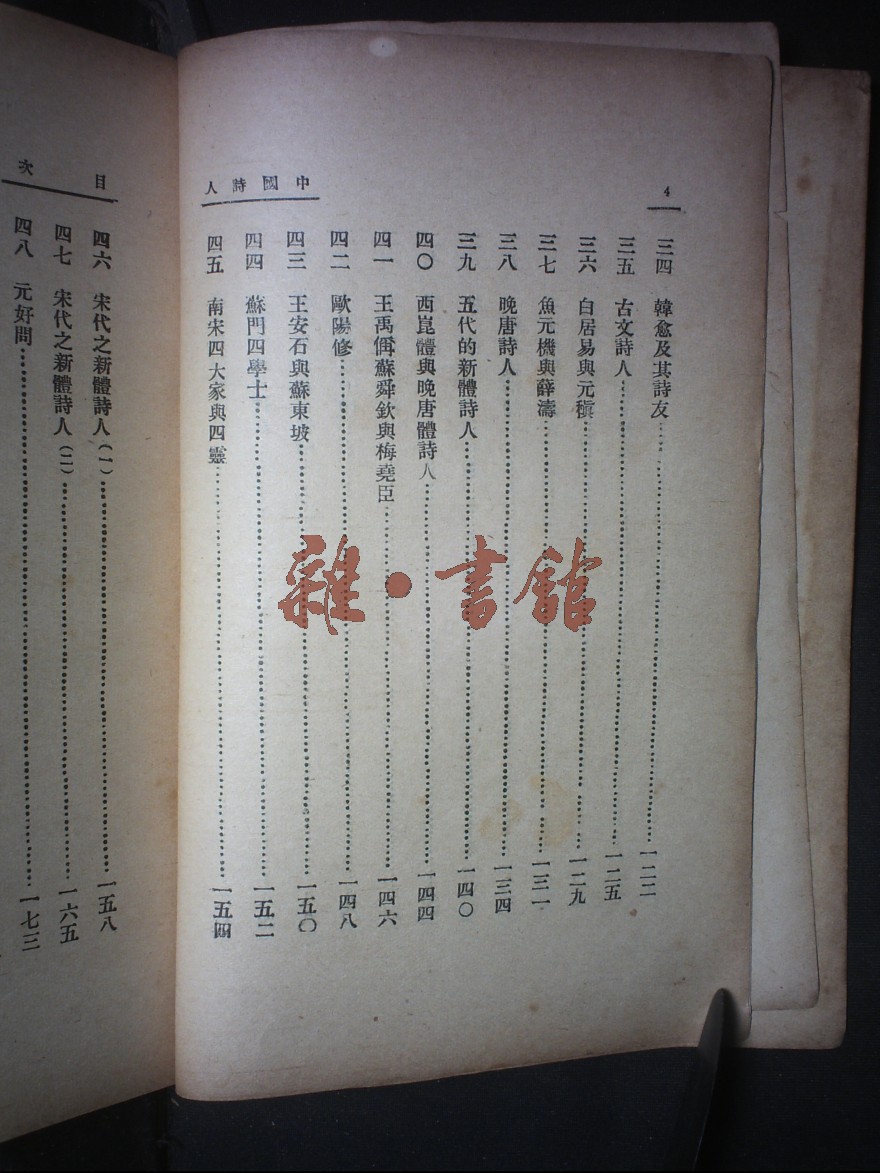 4
中國詩人
三四 韓愈及其詩友 一二二
三五 古文詩人 一二五
三六 白居易與元稹 一二九
三七 魚元機與薛濤 一三一
三八 晚唐詩人 一三四
三九 五代的新體詩人 一四〇
四〇 西崑體與晚唐體詩人 一四四
四一 王禹偁蘇舜欽與梅堯臣 一四六
四二 歐陽修 一四八
四三 王安石與蘇東坡 一五〇
四四 蘇門四學士 一五二
四五 南宋四大家與四靈 一五四
目次
四六 宋代之新體詩人(一) 一五八
四七 宋代之新體詩人(二) 一六五
四八 元好問 一七三
雜·書館